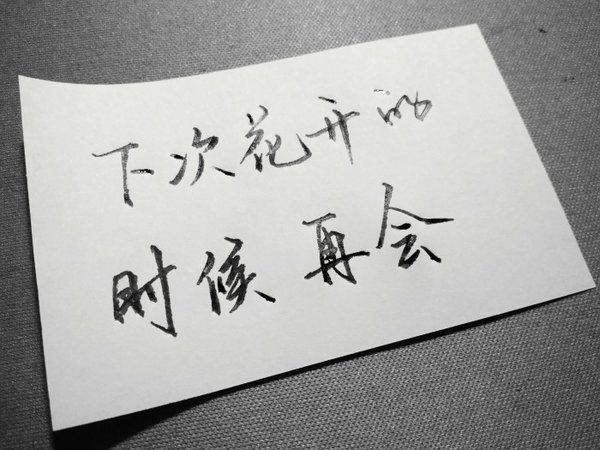 下次花开的
时候再会